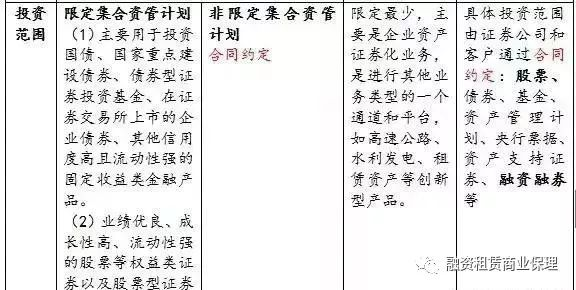 投资
范围
限定集合资管计划
（1）主要用于投
资国债、国家重点
建设债券、债券型证
券投资基金、在证
券交易所上市的企
业债券、其他信用
度高且流动性强的
固定收益类金融产
品。
（2）业绩优良、成
长性高、流动性强
的股票等权益类证
券以及股票型证券
非限定集合资管
计划
合同约定
限定最少，主
要是企业资产
证券化业务，
是进行其他业
务类型的一个
通道和平台，
如高速公路、
水利发电、租
赁资产等创新
型产品。
具体投资范围
由证券公司和
客户通过合同
约定：股票、
债券、基金、
资产管理计
划、央行票据、
资产支持证
券、融资融券
等
融资租赁商业保理